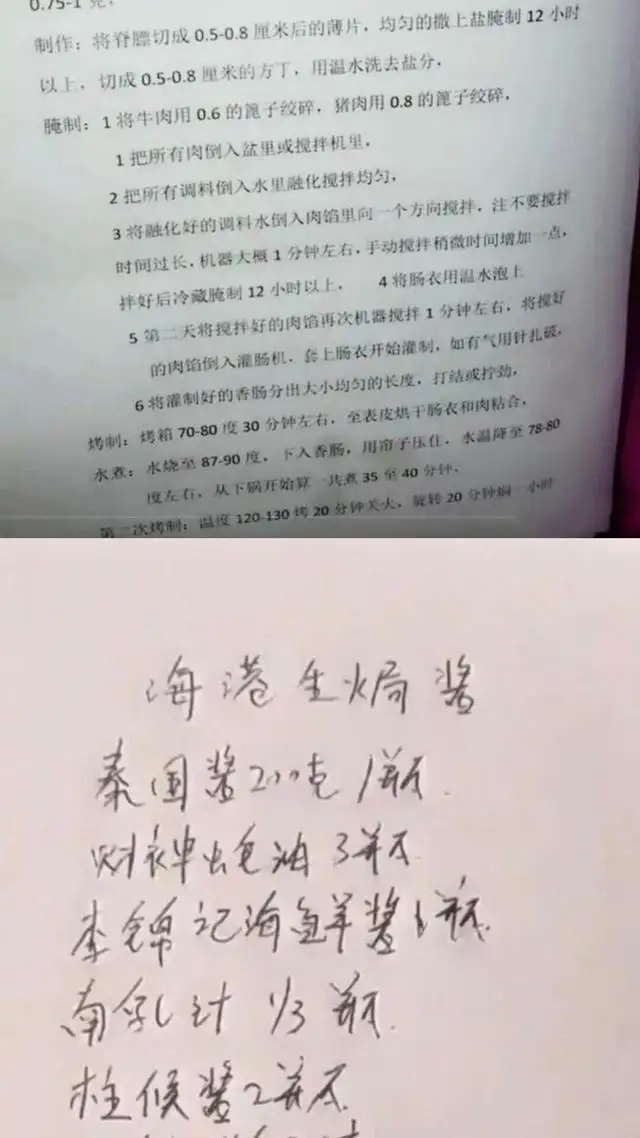 0.75-1 克，
制作：将脊膘切成 0.5-0.8 厘米后的薄片，均匀的撒上盐腌制 12 小时
以上，切成 0.5-0.8 厘米的方丁，用温水洗去盐分，
腌制：1 将牛肉用 0.6 的篦子绞碎，猪肉用 0.8 的篦子绞碎，
1 把所有肉倒入盆里或搅拌机里，
2 把所有调料倒入水里融化搅拌均匀，
3 将融化好的调料水倒入肉馅里向一个方向搅拌，注不要搅拌
时间过长，机器大概 1 分钟左右，手动搅拌稍微时间增加一点，
拌好后冷藏腌制 12 小时以上， 4 将肠衣用温水泡上
5 第二天将搅拌好的肉馅再次机器搅拌 1 分钟左右，将搅好
的肉馅倒入灌肠机，套上肠衣开始灌制，如有气用针扎破，
6 将灌制好的香肠分出大小均匀的长度，打结或拧劲，
烤制：烤箱 70-80 度 30 分钟左右，至表皮烘干肠衣和肉粘合，
水煮：水烧至 87-90 度，下入香肠，用帘子压住，水温降至 78-80
度左右，从下锅开始算一共煮 35 至 40 分钟，
第二次烤制：温度 120-130 烤 20 分钟关火，旋转 20 分钟焖一小时
海港生焗酱
泰国酱200克 1瓶.
财神蚝油 3瓶
李锦记海鲜酱 瓶.
南乳汁 1/3 瓶.
柱候酱2瓶